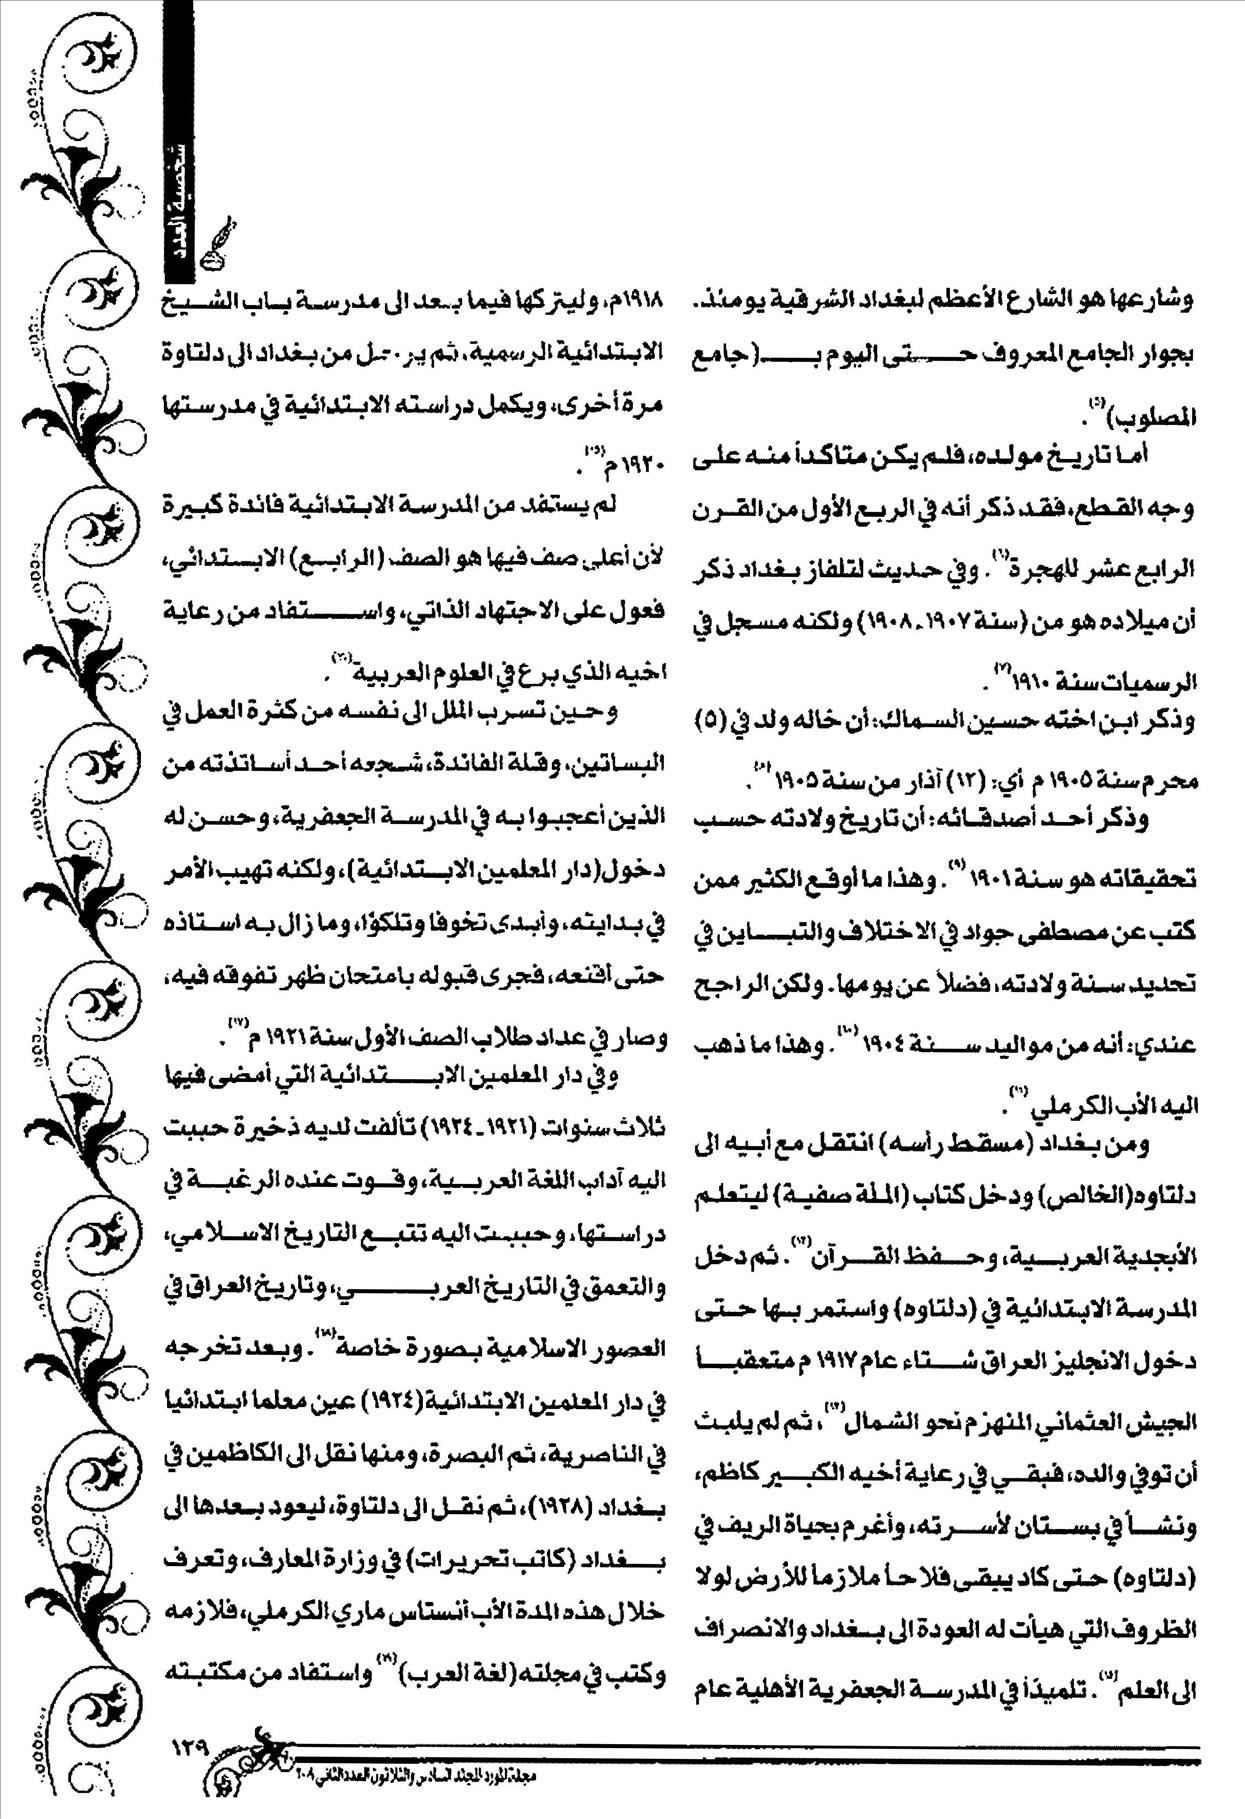 شخصية العدد
وشارعها هو الشارع الأعظم لبغداد الشرقية يومئذ.
بجوار الجامع المعروف حتى اليوم بـ(جامع
المصلوب)(٥).
أما تاريخ مولده، فلم يكن متاكداً منه على
وجه القطع، فقد ذكر أنه في الربع الأول من القرن
الرابع عشر للهجرة(٦). وفي حديث لتلفاز بغداد ذكر
أن ميلاده هو من (سنة ١٩٠٧ـ١٩٠٨) ولكنه مسجل في
الرسميات سنة ١٩١٠(٧).
وذكر ابن اخته حسين السماك: أن خاله ولد في (٥)
محرم سنة ١٩٠٥ م أي: (١٢) آذار من سنة ١٩٠٥(٨).
وذكر أحد أصدقائه: أن تاريخ ولادته حسب
تحقيقاته هو سنة ١٩٠١(٩). وهذا ما أوقع الكثير ممن
كتب عن مصطفى جواد في الاختلاف والتباين في
تحديد سنة ولادته، فضلاً عن يومها. ولكن الراجح
عندي: أنه من مواليد سنة ١٩٠٤(١٠). وهذا ما ذهب
اليه الأب الكرملي(١١).
ومن بغداد (مسقط رأسه) انتقل مع أبيه الى
دلتاوه(الخالص) ودخل كتاب (الملة صفية) ليتعلم
الأبجدية العربية، وحفظ القرآن(١٢). ثم دخل
المدرسة الابتدائية في (دلتاوه) واستمر بها حتى
دخول الانجليز العراق شتاء عام ١٩١٧ م متعقباً
الجيش العثماني المنهزم نحو الشمال(١٣)، ثم لم يلبث
أن توفي والده، فبقي في رعاية أخيه الكبير كاظم،
ونشأ في بستان لأسرته، وأغرم بحياة الريف في
(دلتاوه) حتى كاد يبقى فلاحاً ملازماً للأرض لولا
الظروف التي هيأت له العودة الى بغداد والانصراف
الى العلم(١٤). تلميذاً في المدرسة الجعفرية الأهلية عام
١٩١٨م، وليتركها فيما بعد الى مدرسة باب الشيخ
الابتدائية الرسمية، ثم يرحل من بغداد الى دلتاوة
مرة أخرى، ويكمل دراسته الابتدائية في مدرستها
١٩٢٠ م(١٥).
لم يستفد من المدرسة الابتدائية فائدة كبيرة
لأن أعلى صف فيها هو الصف (الرابع) الابتدائي،
فعول على الاجتهاد الذاتي، واستفاد من رعاية
اخيه الذي برع في العلوم العربية(١٦).
وحين تسرب الملل الى نفسه من كثرة العمل في
البساتين، وقلة الفائدة، شجعه أحد أساتذته من
الذين أعجبوا به في المدرسة الجعفرية، وحسن له
دخول(دار المعلمين الابتدائية)، ولكنه تهيب الأمر
في بدايته، وأبدى تخوفا وتلكؤا، وما زال به استاذه
حتى أقنعه، فجرى قبوله بامتحان ظهر تفوقه فيه،
وصار في عداد طلاب الصف الأول سنة ١٩٢١ م(١٧).
وفي دار المعلمين الابتدائية التي أمضى فيها
ثلاث سنوات (١٩٢١ـ١٩٢٤) تألفت لديه ذخيرة حببت
اليه آداب اللغة العربية، وقوت عنده الرغبة في
دراستها، وحببت اليه تتبع التاريخ الاسلامي،
والتعمق في التاريخ العربي، وتاريخ العراق في
العصور الاسلامية بصورة خاصة(١٨). وبعد تخرجه
في دار المعلمين الابتدائية(١٩٢٤) عين معلما ابتدائيا
في الناصرية، ثم البصرة، ومنها نقل الى الكاظمين في
بغداد (١٩٢٨)، ثم نقل الى دلتاوة، ليعود بعدها الى
بغداد (كاتب تحريرات) في وزارة المعارف، وتعرف
خلال هذه المدة الأب أنستاس ماري الكرملي، فلازمه
وكتب في مجلته(لغة العرب)(١٩) واستفاد من مكتبته
١٢٩
مجلة المورد المجلد السادس والثلاثون العدد الثاني ٢٠٠٨